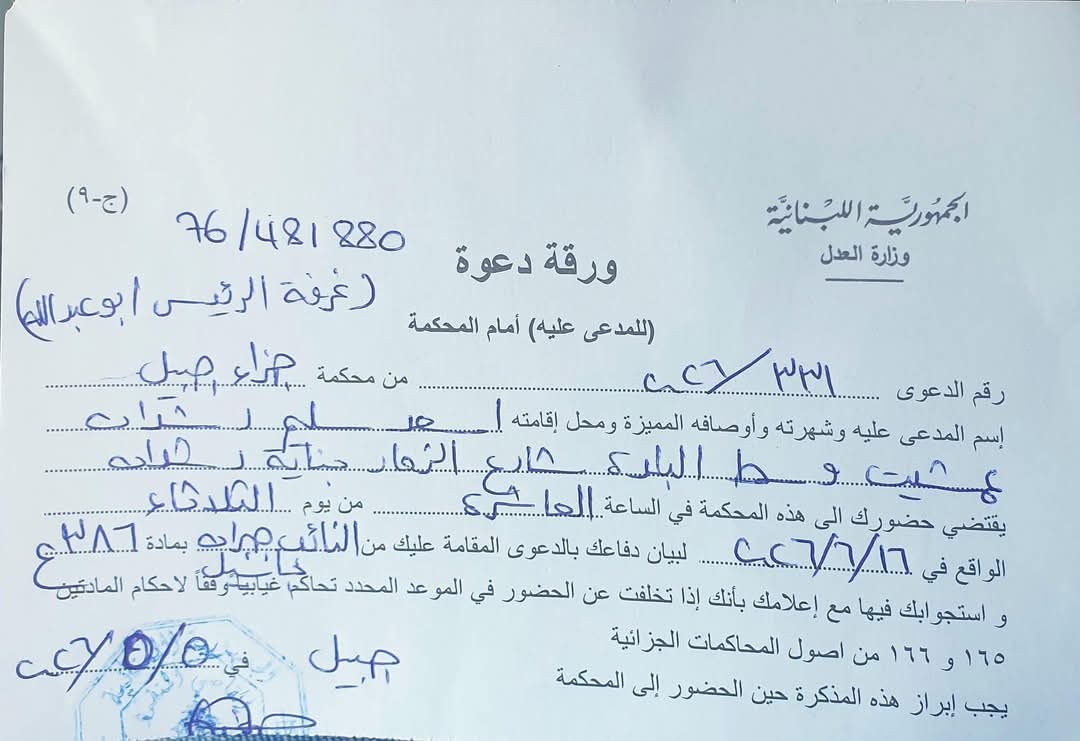 الجمهورية اللبنانية
وزارة العدل
(ج-٩)
76/481 880
(غرفة الرئيس ابو عبدالله)
ورقة دعوة
(للمدعى عليه) أمام المحكمة
رقم الدعوى ٣٣١/٢٠٢٦ من محكمة جزاء جبيل
إسم المدعى عليه وشهرته وأوصافه المميزة ومحل إقامته
عمشيت وسط البلدة شارع بناية
يقتضي حضورك الى هذه المحكمة في الساعة العاشرة من يوم الثلاثاء
الواقع في ١٦/٦/٢٠٢٦ لبيان دفاعك بالدعوى المقامة عليك من النائب جبران باسيل بمادة ٣٨٦ ع
و استجوابك فيها مع إعلامك بأنك إذا تخلفت عن الحضور في الموعد المحدد تحاكم غيابيا وفقاً لاحكام المادتين
١٦٥ و ١٦٦ من اصول المحاكمات الجزائية
جبيل في ٥/٥/٢٠٢٦
يجب إبراز هذه المذكرة حين الحضور إلى المحكمة